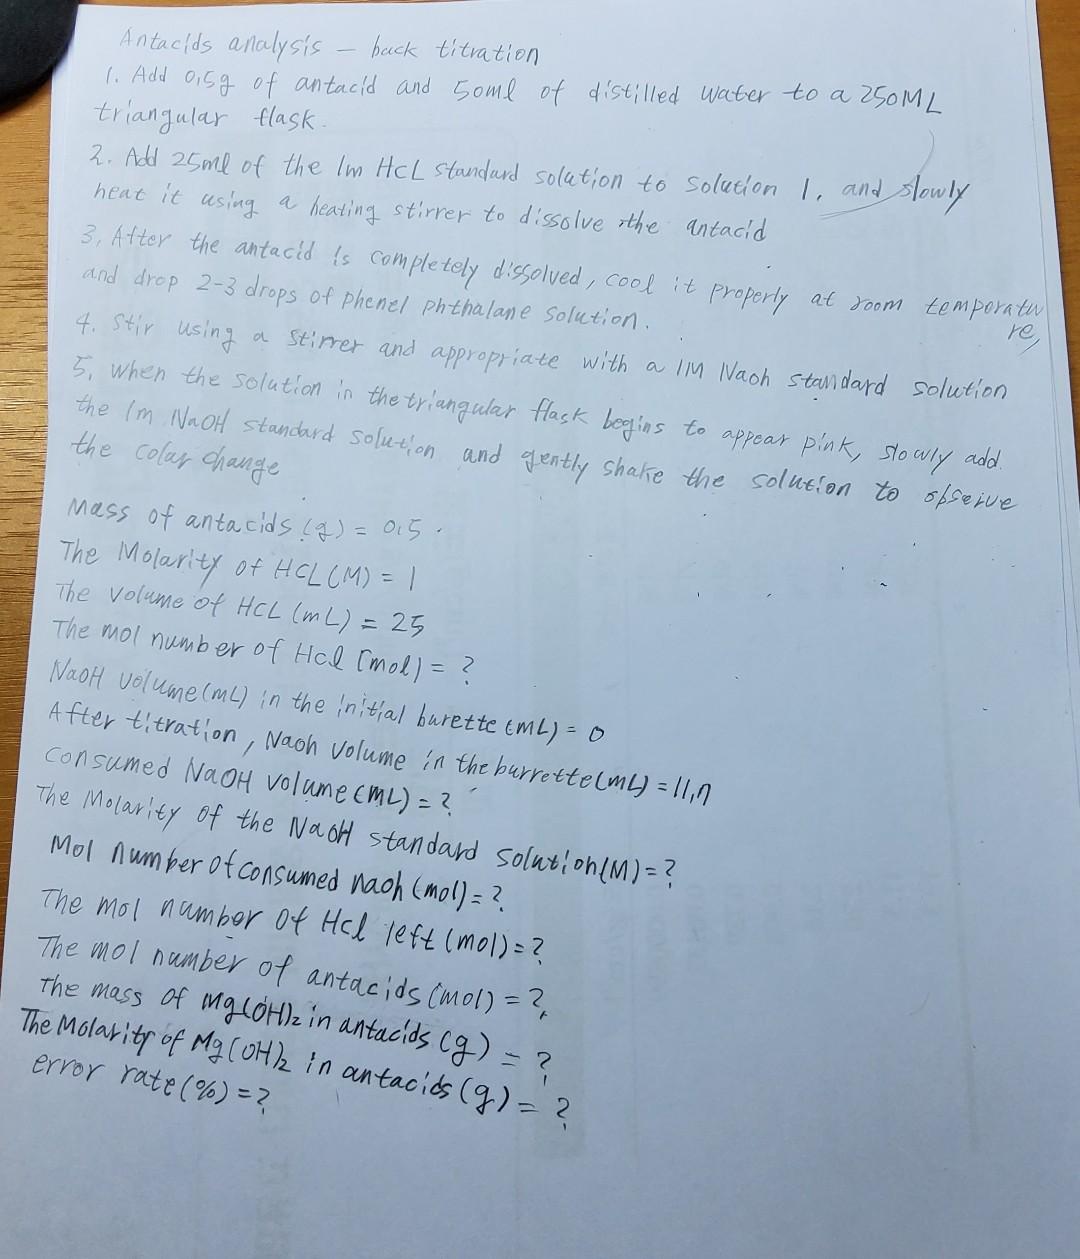 Antacids analysis – back titration
1. Add 0,5g of antacid and 50ml of distilled water to a 250ML
triangular flask.
2. Add 25ml of the 1m HCL standard solution to solution 1, and slowly
heat it using a heating stirrer to dissolve the antacid
3, After the antacid is completely dissolved, cool it properly at room temperatu
re,
and drop 2-3 drops of phenel phthalane solution.
4. Stir using a stirrer and appropriate with a 1M Naoh standard solution
5, when the solution in the triangular flask begins to appear pink, slowly add
the 1m NaOH standard solution and gently shake the solution to observe
the color change
Mass of antacids (g) = 0,5
The Molarity of HCL (M) = 1
The volume of HCL (mL) = 25
The mol number of Hcl [mol) = ?
NaOH volume (mL) in the initial burette (mL) = 0
After titration, Naoh volume in the burrette (mL) = 11,7
consumed NaOH volume (mL) = ?
The Molarity of the NaOH standard solution (M) = ?
Mol number of consumed naoh (mol) = ?
The mol number of Hcl left (mol) = ?
The mol number of antacids (mol) = ?
The mass of Mg(OH)2 in antacids (g) = ?
The Molarity of Mg(OH)2 in antacids (g) = ?
error rate (%) = ?